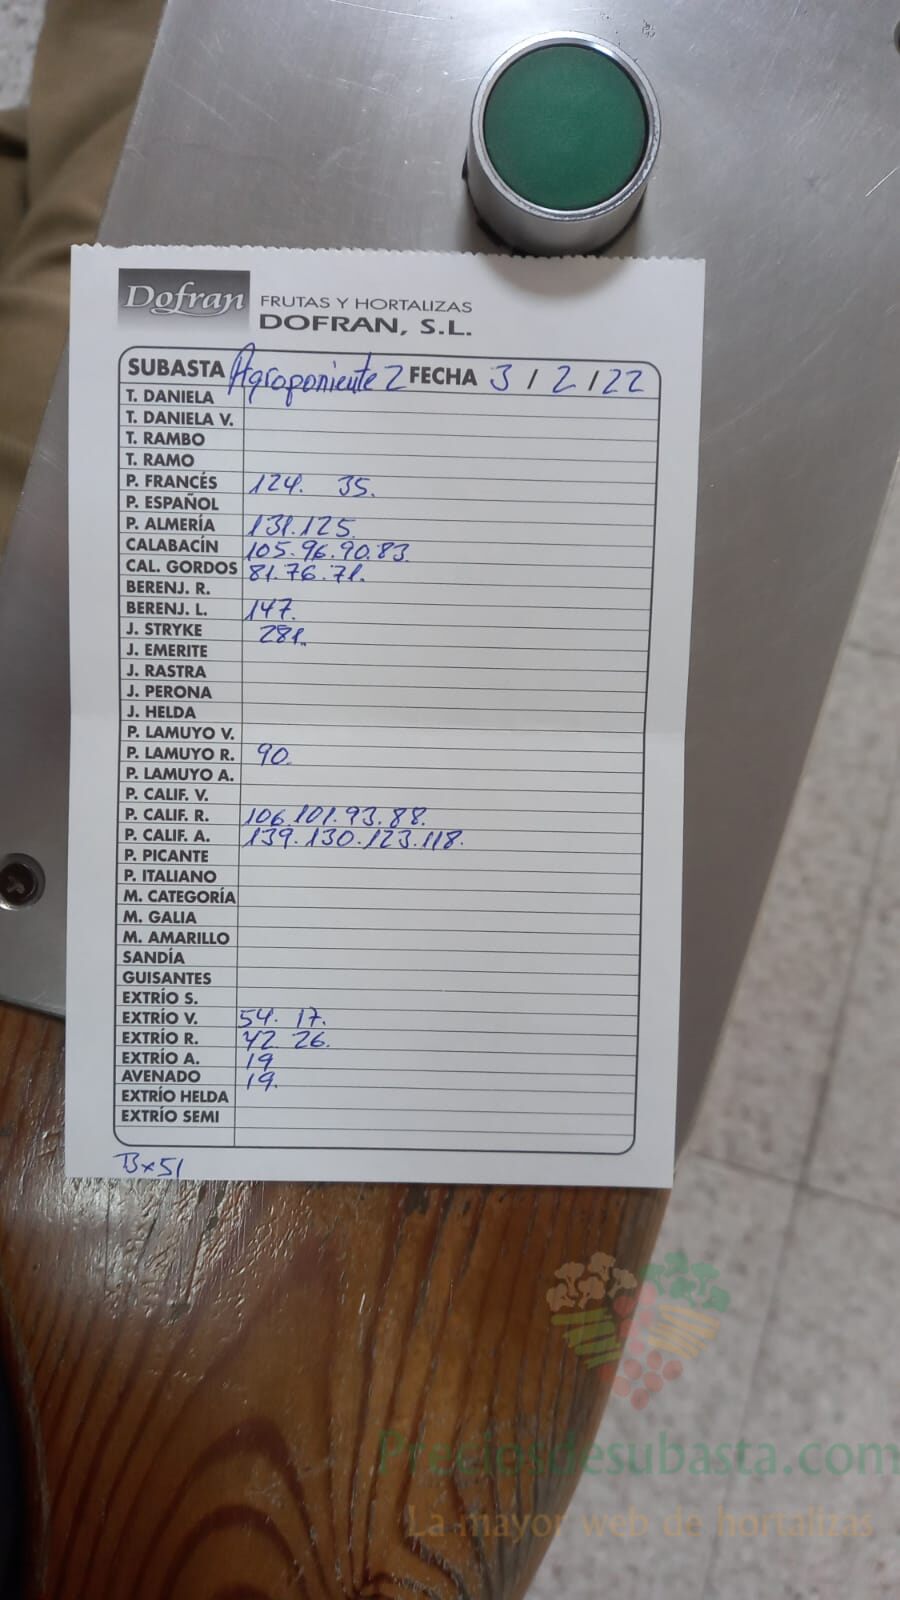 Dofran FRUTAS Y HORTALIZAS
DOFRAN, S.L.
SUBASTA Agroponiente 2 FECHA 3 / 2 / 22
T. DANIELA
T. DANIELA V.
T. RAMBO
T. RAMO
P. FRANCÉS 124. 35.
P. ESPAÑOL
P. ALMERÍA 131.125.
CALABACÍN 105.96.90.83.
CAL. GORDOS 81.76.71.
BERENJ. R.
BERENJ. L. 147.
J. STRYKE 281.
J. EMERITE
J. RASTRA
J. PERONA
J. HELDA
P. LAMUYO V.
P. LAMUYO R. 90.
P. LAMUYO A.
P. CALIF. V.
P. CALIF. R. 106.101.93.88.
P. CALIF. A. 139.130.123.118.
P. PICANTE
P. ITALIANO
M. CATEGORÍA
M. GALIA
M. AMARILLO
SANDÍA
GUISANTES
EXTRÍO S.
EXTRÍO V. 54. 17.
EXTRÍO R. 42 26.
EXTRÍO A. 19
AVENADO 19.
EXTRÍO HELDA
EXTRÍO SEMI
Bx51
Preciosdesubasta.com
La mayor web de hortalizas